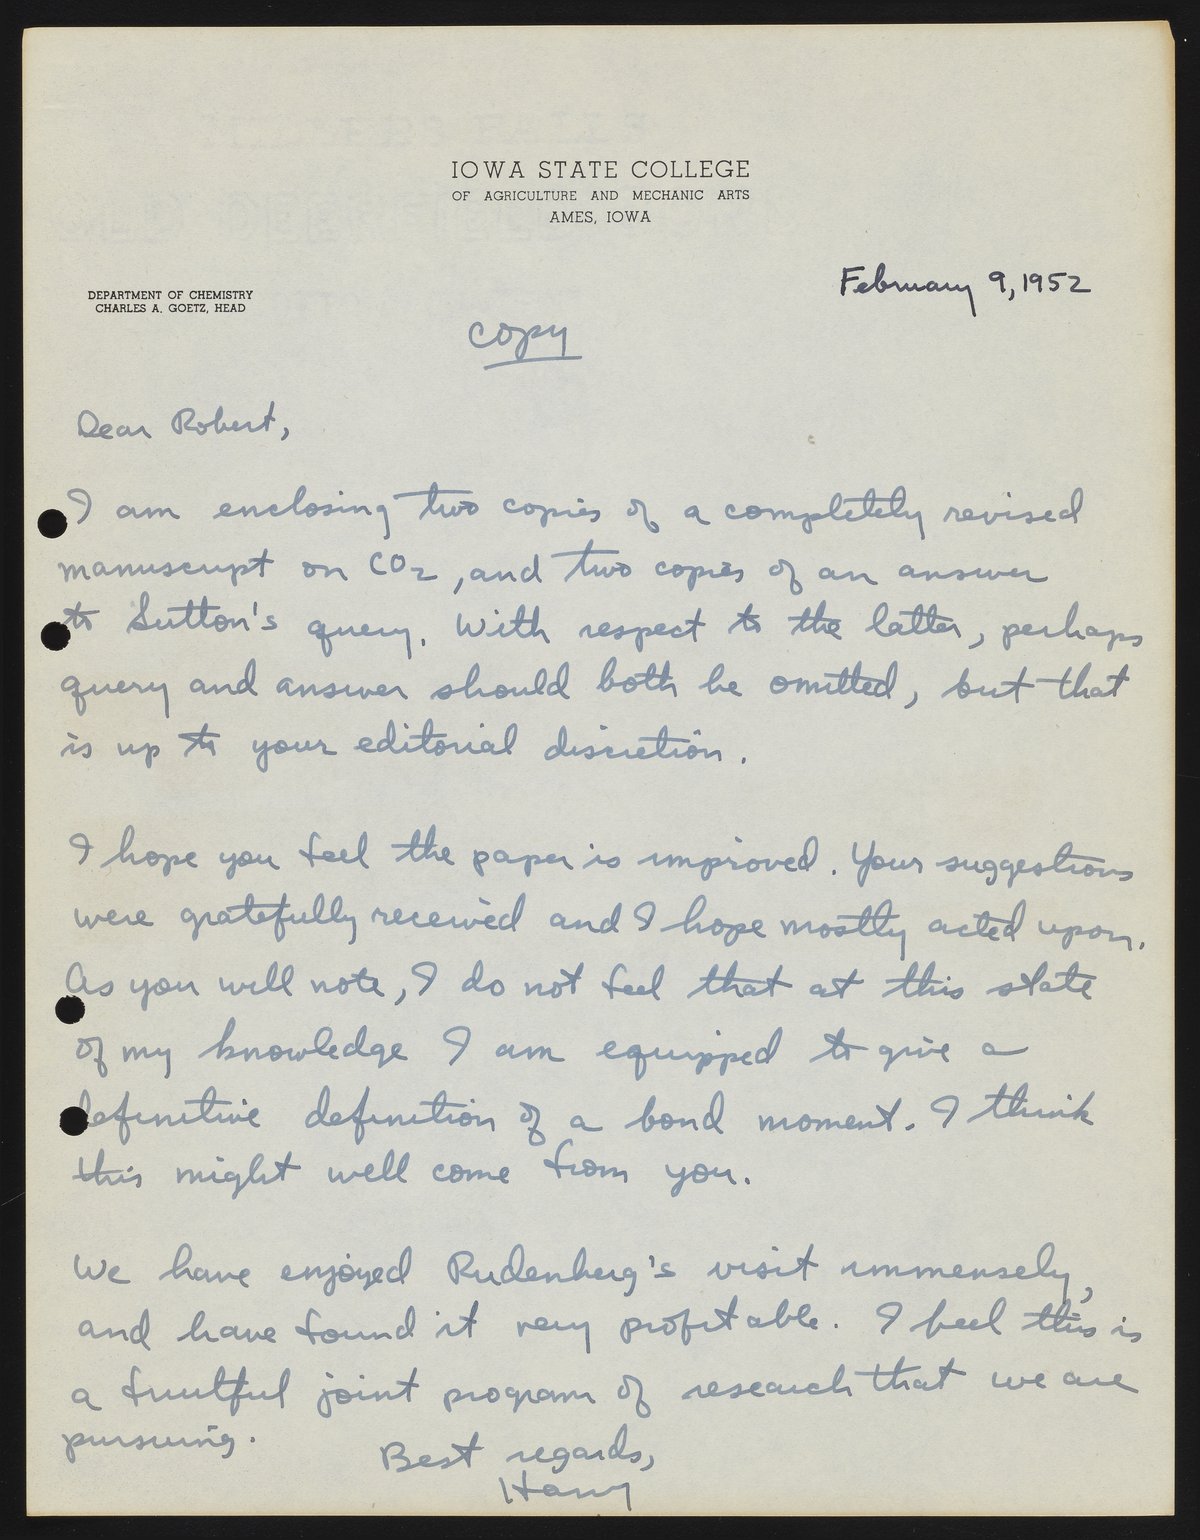 IOWA STATE COLLEGE
OF AGRICULTURE AND MECHANIC ARTS
AMES, IOWA
February 9, 1952
DEPARTMENT OF CHEMISTRY
CHARLES A. GOETZ, HEAD
Copy
Dear Robert,
I am enclosing two copies of a completely revised
manuscript on CO2, and two copies of an answer
to Sutton's query. With respect to the latter, perhaps
query and answer should both be omitted, but that
is up to your editorial discretion.
I hope you feel the paper is improved. Your suggestions
were gratefully received and I hope mostly acted upon.
As you will note, I do not feel that at this state
of my knowledge I am equipped to give a
definitive definition of a bond moment. I think
this might well come from you.
We have enjoyed Rudenberg's visit immensely,
and have found it very profitable. I feel this is
a fruitful joint program of research that we are
pursuing.
Best regards,
Harry